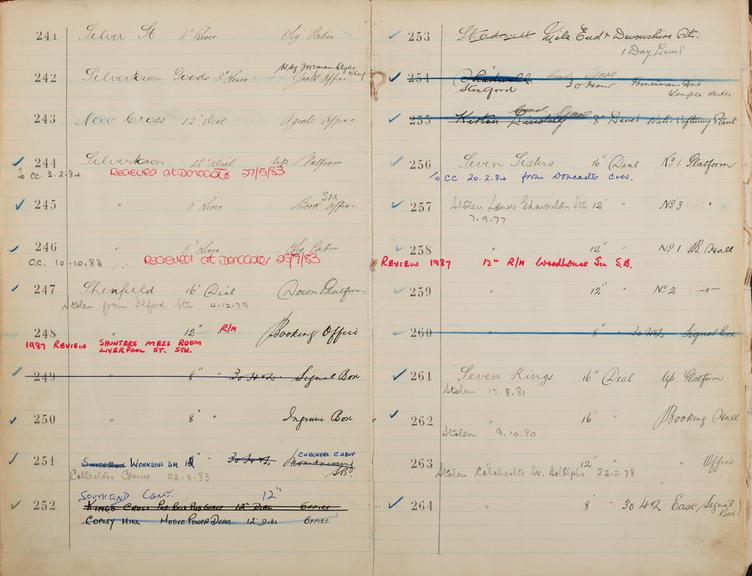 241 Silver St 8" Liner Bkg Cabin
242 Silvertown Goods 8" Liner Goods Office
243 New Cross 12" Dial Agents Office
244 Silvertown 12" Dial Up Platform
To CC 3.2.84 RECEIVED AT DONCASTER 27/5/83
245 " 8" Liner SM Book Office
246 " 8" Liner Office
C.C. 10.10.83 RECEIVED AT DONCASTER
247 Shenfield 16" Dial Down Platform
Stolen from Ilford Stn 4.12.79
248 " 12" " R/H Booking Office
1987 REVIEW SHUNTERS MESS ROOM
LIVERPOOL ST. STN.
249 " 8" " 30 H2 Signal Box
250 " 8" " Ingrave Box
251 WORKSOP SM 12" CHECKERS CABIN
22.11.83
SOUTHEND CONT. 12"
252 KINGS CROSS 12" DIAL OFFICE
COPLEY HILL MOTIVE POWER DEPT 12" DIAL OFFICE
253 Mile End & Devonshire St.
1 Day Liner
254 Good Spare
Stratford 30 Hour Temple Mills
255 Good Spare 8" Water Softening Plant
256 Seven Sisters 16" Dial No 1 Platform
To CC 20.2.84 from Doncaster
257 Stolen Lower Edmonton Stn 12" " No 3 "
7.9.77
258 " 12" " No 1 B. Hall
REVIEW 1987 12" R/H WOODHOUSE Jn S.B.
259 " 12" " No 2
260 " 8" " 30 H2 Signal Box
261 Seven Kings 16" Dial Up Platform
Stolen 17.8.81
262 " 16" " Booking Hall
Stolen 9.10.80
263 " 12" " Office
Stolen Colchester St. Botolphs 22-2-78
264 " 8" 30 H2 East Signal Box